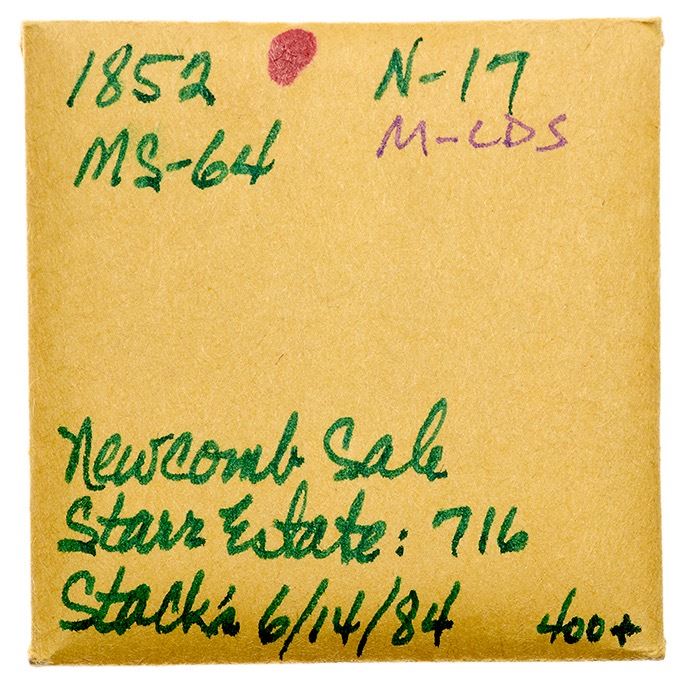 1852 N-17
MS-64 M-LDS
Newcomb Sale
Starr Estate: 716
Stack's 6/14/84 400+